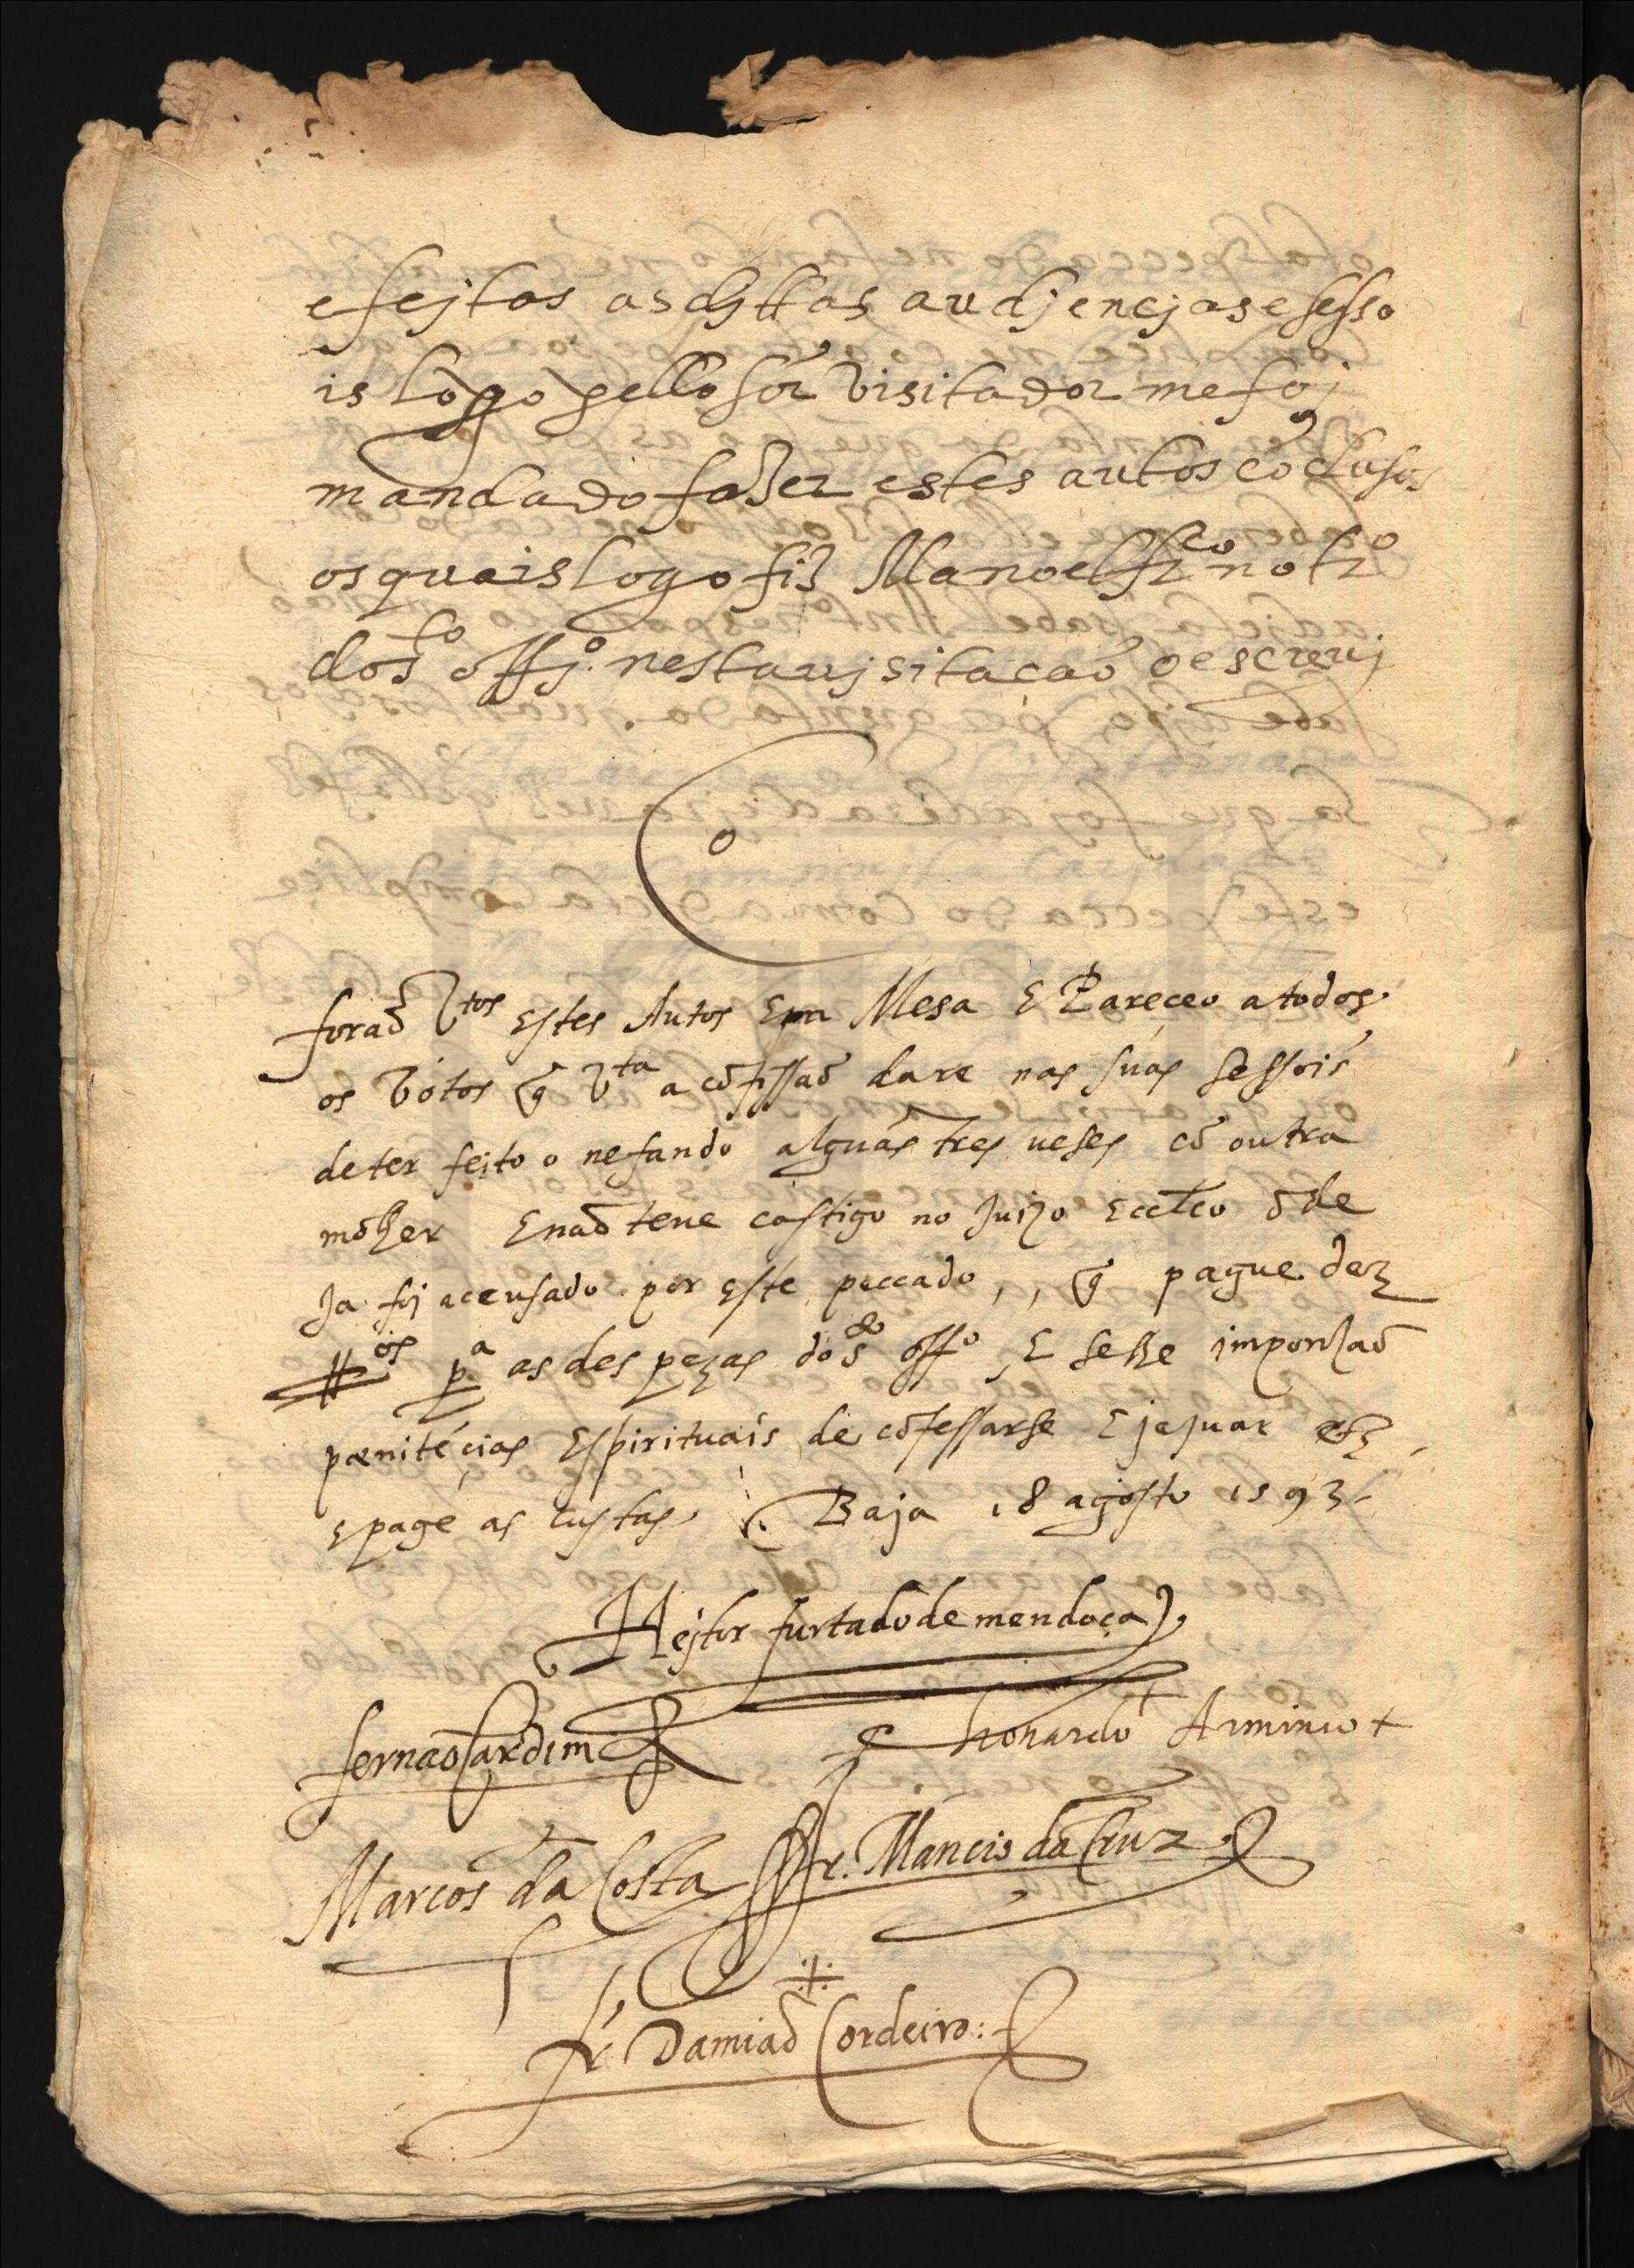 e fejtas as dịttas audjencjas e sesso
is logo pello sor̃ visitador me foj
mandado fazer estes autos cõclusos
os quais logo fiz Manoel frco notro
do sto offjo. nesta vjsitaçaõ o escrevj
foraõ vtos estes Autos Em Mesa E Pareceo a todos
os Votos q̃ vta a cõfissaõ da re nas suas sessois
de ter feito o nefando alguãs tres veses cõ outra
molher E naõ teve castigo no Juizo Eccl̃co õde
Ja foj acusado por este peccado, , q̃ pague dez
crdos pa as despezas do sto offo, E se lhe imponhaõ
pænitẽcias Espirituais de cõfessarse E jejuar etz
E page as custas. Baja 18 agosto 1593
Hejtor furtado de mendoça
fernaõ Cardim
Leonardo Arminio +
Marcos da Costa
fr. Mancio da Cruz
fr. Damiaõ Cordeiro: